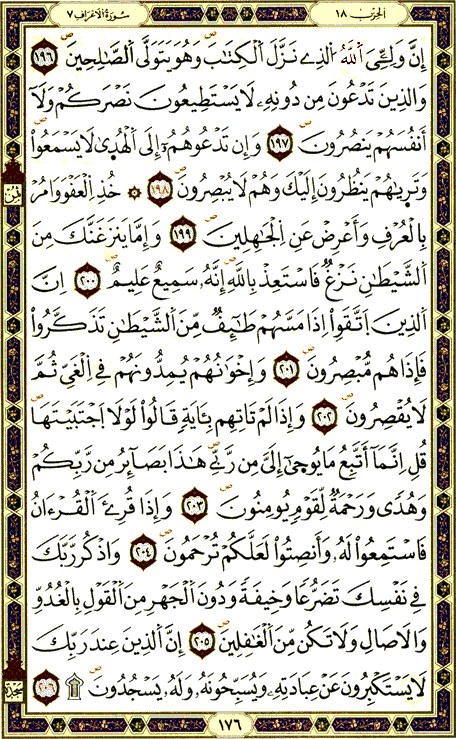 الحزب ١٨
سورة الاعراف ٧
إِنَّ وَلِـِّۧيَ اَ۬للَّهُ اُ۬لذِے نَزَّلَ اَ۬لْكِتَٰبَ وَهُوَ يَتَوَلَّى اَ۬لصَّٰلِحِينَ ١٩٦
وَالذِينَ تَدْعُونَ مِن دُونِهِۦ لَا يَسْتَطِيعُونَ نَصْرَكُمْ وَلَآ
أَنفُسَهُمْ يَنصُرُونَ ١٩٧ وَإِن تَدْعُوهُمُۥٓ إِلَى اَ۬لْهُد۪ىٰ لَا يَسْمَعُواْ
وَتَر۪يٰهُمْ يَنظُرُونَ إِلَيْكَ وَهُمْ لَا يُبْصِرُونَ ١٩٨ ۞ خُذِ اِ۬لْعَفْوَ وَامُرْ
ثمن
بِالْعُرْفِ وَأَعْرِضْ عَنِ اِ۬لْجَٰهِلِينَ ١٩٩ وَإِمَّا يَنزَغَنَّكَ مِنَ
اَ۬لشَّيْطَٰنِ نَزْغٌ فَاسْتَعِذْ بِاللَّهِ إِنَّهُۥ سَمِيعٌ عَلِيمٌ ٢٠٠ اِنَّ
اَ۬لذِينَ اَ۪تَّقَوِاْ اِذَا مَسَّهُمْ طَٰٓئِفٌ مِّنَ اَ۬لشَّيْطَٰنِ تَذَكَّرُواْ
فَإِذَا هُم مُّبْصِرُونَ ٢٠١ وَإِخْوَٰنُهُمْ يُمِدُّونَهُمْ فِے اِ۬لْغَيِّ ثُمَّ
لَا يُقْصِرُونَ ٢٠٢ وَإِذَا لَمْ تَاتِهِم بِـَٔايَةٍ قَالُواْ لَوْلَا اَ۪جْتَبَيْتَهَا
قُلِ اِنَّمَآ أَتَّبِعُ مَا يُوح۪ىٰٓ إِلَيَّ مِن رَّبِّے هَٰذَا بَصَآئِرُ مِن رَّبِّكُمْ
وَهُدىً وَرَحْمَةٌ لِّقَوْمٍ يُومِنُونَ ٢٠٣ وَإِذَا قُرِئَ اَ۬لْقُرْءَانُ
فَاسْتَمِعُواْ لَهُۥ وَأَنصِتُواْ لَعَلَّكُمْ تُرْحَمُونَ ٢٠٤ وَاذْكُر رَّبَّكَ
فِے نَفْسِكَ تَضَرُّعاً وَخِيفَةً وَدُونَ اَ۬لْجَهْرِ مِنَ اَ۬لْقَوْلِ بِالْغُدُوِّ
وَالَاصَالِ وَلَا تَكُن مِّنَ اَ۬لْغَٰفِلِينَ ٢٠٥ إِنَّ اَ۬لذِينَ عِندَ رَبِّكَ
لَا يَسْتَكْبِرُونَ عَنْ عِبَادَتِهِۦ وَيُسَبِّحُونَهُۥ وَلَهُۥ يَسْجُدُونَ ۩ ٢٠٦
سجدة
١٧٦